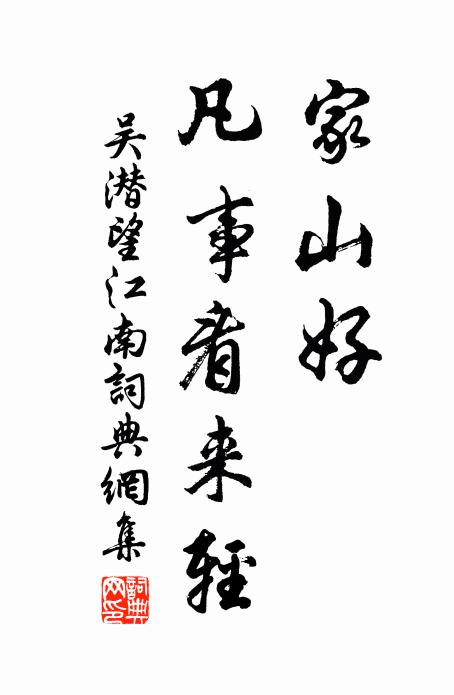 家山好
凡事看来輕
吴潜望江南詞典網集
詞典网印